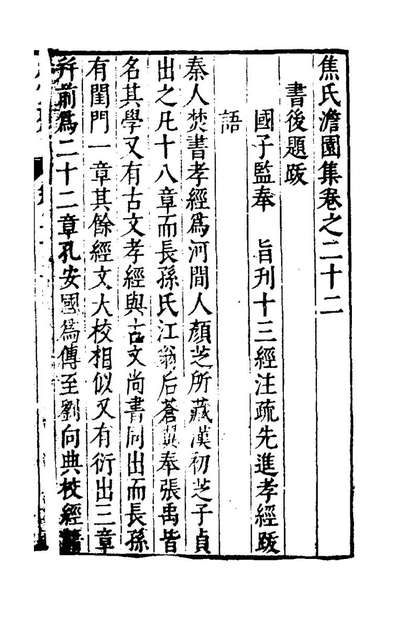 焦氏澹園集卷之二十二
書後題跋
國子監奉　旨刊十三經注疏先進孝經跋
語
秦人焚書孝經爲河間人顏芝所藏漢初芝子貞
出之凡十八章而長孫氏江翁后蒼翼奉張禹皆
名其學又有古文孝經與古文尚書同出而長孫
有閨門一章其餘經文大校相似又有衍出三章
并前爲二十二章孔安國爲傳至劉向典校經籍